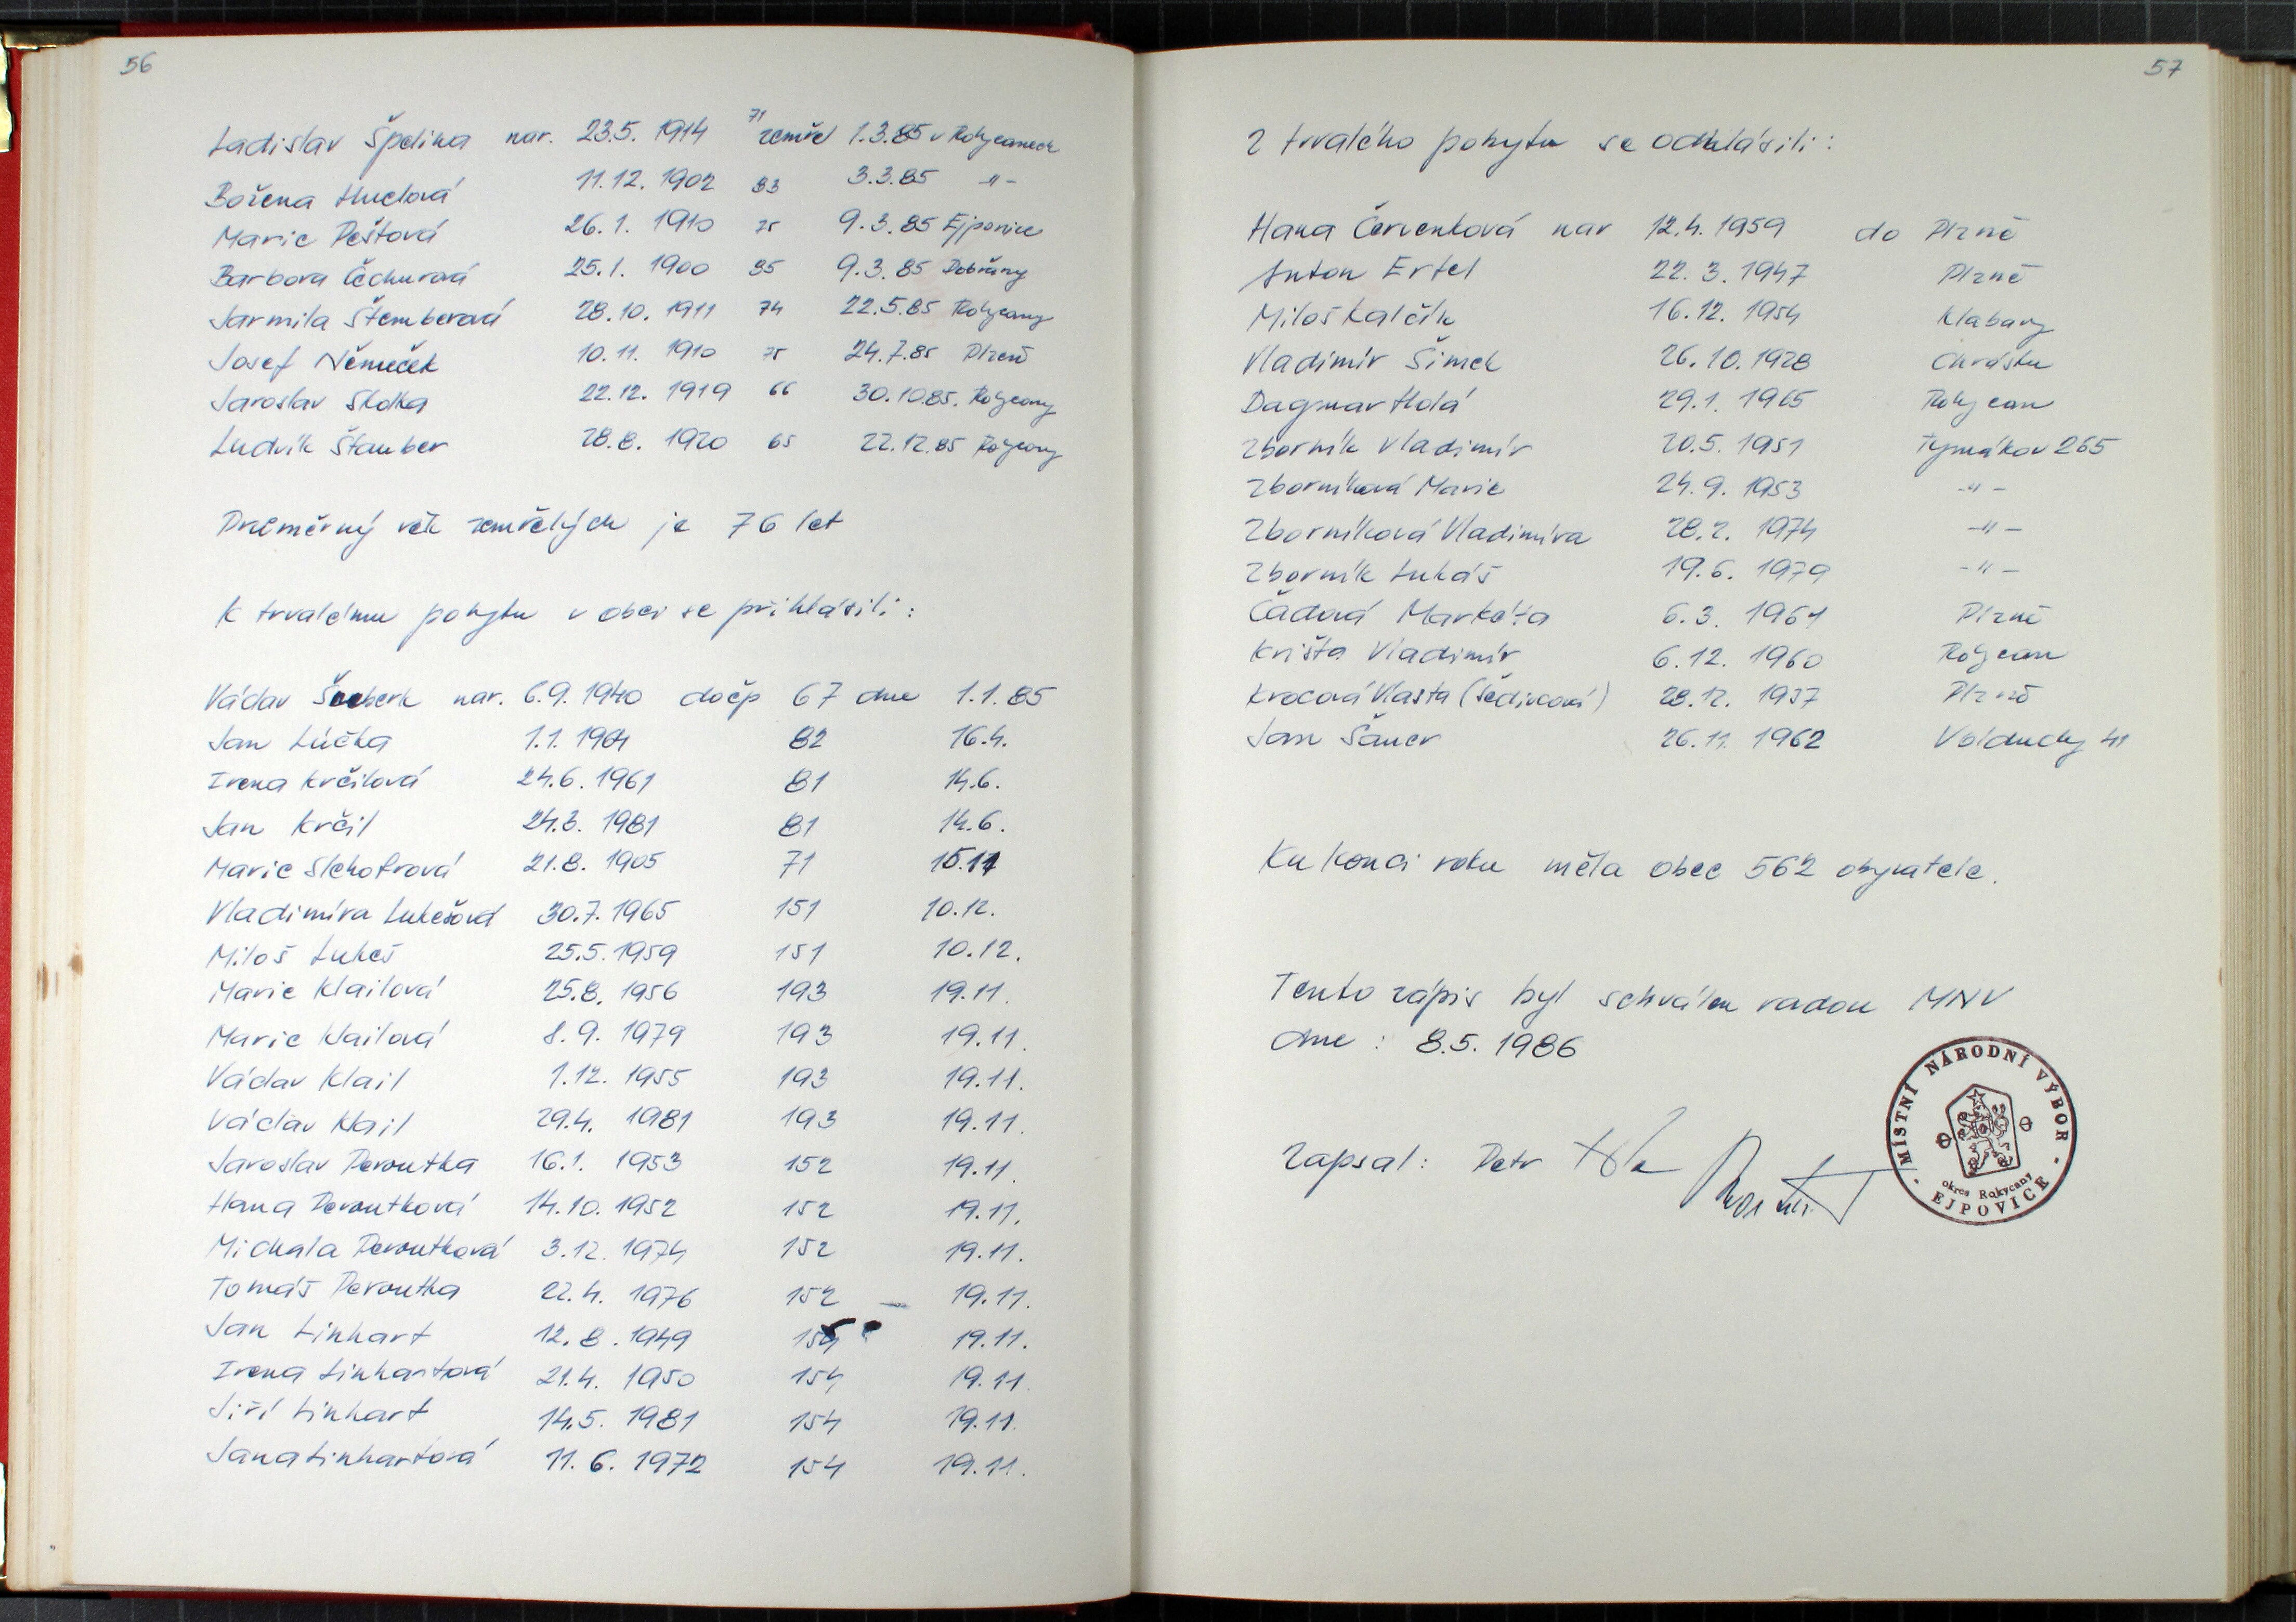 56
Ladislav Špelina nar. 23.5. 1914 71 zemřel 1.3.85 v Rokycanech
Božena Huclová 11.12. 1902 83 3.3.85 -"-
Marie Peštová 26.1. 1910 75 9.3.85 Ejpovice
Barbora Čechurová 25.1. 1900 85 9.3.85 Dobřany
Jarmila Štemberová 28.10. 1911 74 22.5.85 Rokycany
Josef Němeček 10.11. 1910 75 24.7.85 Plzeň
Jaroslav Skolka 22.12. 1919 66 30.10.85. Rokycany
Ludvík Štauber 28.8. 1920 65 22.12.85 Rokycany
Průměrný věk zemřelých je 76 let
K trvalému pobytu v obci se přihlásili:
Václav nar. 6.9.1940 do čp 67 dne 1.1.85
Jan Lúčka 1.1. 82 16.4.
Irena Krčilová 24.6. 1961 81 14.6.
Jan Krčil 24.3. 1981 81 14.6.
Marie Slehofrová 21.8. 1905 71 15.11
Vladimíra Lukešová 30.7. 1965 151 10.12.
Miloš Lukeš 25.5. 1959 151 10.12.
Marie Klailová 25.8. 1956 193 19.11.
Marie Klailová 8.9. 1979 193 19.11.
Václav Klail 1.12. 1955 193 19.11.
Václav Klail 29.4. 1981 193 19.11.
Jaroslav Peroutka 16.1. 1953 152 19.11.
Hana Peroutková 14.10. 1952 152 19.11.
Michala Peroutková 3.12. 1974 152 19.11.
Tomáš Peroutka 22.4. 1976 152 – 19.11.
Jan Linhart 12.8. 1949 154 19.11.
Irena Linhartová 21.4. 1950 154 19.11.
Jiří Linhart 14.5. 1981 154 19.11.
Jana Linhartová 11.6. 1972 154 19.11.
57
Z trvalého pobytu se odhlásili:
Hana Červenková nar 12.4. 1959 do Plzně
Anton Ertel 22.3. 1947 Plzně
Miloš Kalčík 16.12. 1954 Klabavy
Vladimír Šimek 26.10. 1928 Chrástu
Dagmar Holá 29.1. 1965 Rokycan
Zborník Vladimír 20.5. 1951 Tymákov 265
Zborníková Marie 24.9. 1953 -"-
Zborníková Vladimíra 28.2. 1974 -"-
Zborník Lukáš 19.6. 1979 -"-
Čádová Markéta 6.3. 1964 Plzně
Krišta Vladimír 6.12. 1960 Rokycan
Krocová Vlasta (Šedivcová) 28.12. 1937 Plzně
Jan Šauer 26.11. 1962 Volduchy 41
Ku konci roku měla obec 562 obyvatele.
Tento zápis byl schválen radou MNV
dne : 8.5. 1986
Zapsal: Petr
MÍSTNÍ NÁRODNÍ VÝBOR
okres Rokycany
EJPOVICE